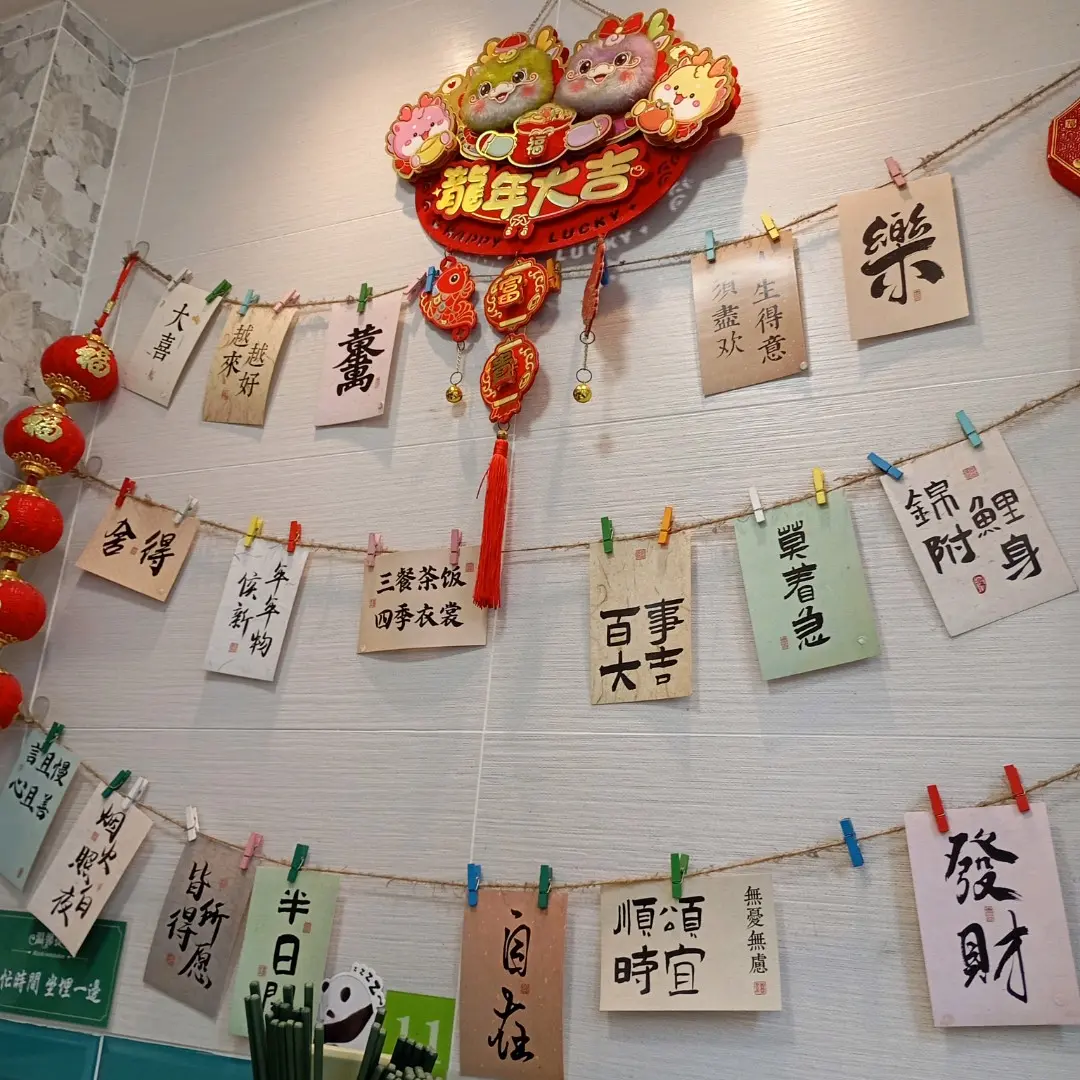 福
龍年大吉
HAPPY LUCKY
富
貴
福
福
大喜
越來
越好
生得意
須盡欢
樂
舍得
年年物
候新
三餐茶饭
四季衣裳
百事
大吉
莫着急
錦鯉
附身
言且慢
心且善
烟火
皆得所愿
半日
自在
順頌
時宜
無憂無慮
發財
忙時間 坐埋一邊